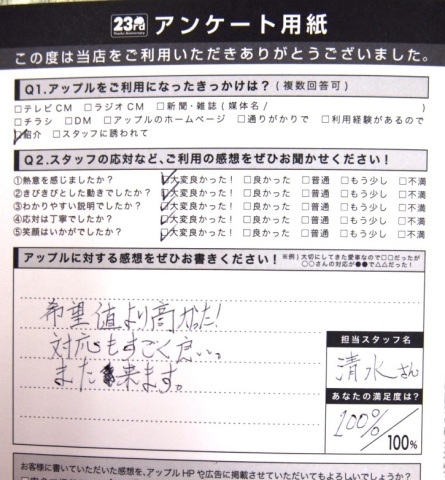 23rd アンケート用紙
この度は当店をご利用いただきありがとうございました。
Q1.アップルをご利用になったきっかけは？(複数回答可)
□テレビCM □ラジオCM □新聞・雑誌(媒体名/ )
□チラシ □DM □アップルのホームページ □通りがかりで □利用経験があるので
☑紹介 □スタッフに誘われて
Q2.スタッフの応対など、ご利用の感想をぜひお聞かせください！
①熱意を感じましたか？ ☑大変良かった！ □良かった □普通 □もう少し □不満
②きびきびとした動きでしたか？ ☑大変良かった！ □良かった □普通 □もう少し □不満
③わかりやすい説明でしたか？ ☑大変良かった！ □良かった □普通 □もう少し □不満
④応対は丁寧でしたか？ ☑大変良かった！ □良かった □普通 □もう少し □不満
⑤笑顔はいかがでしたか？ ☑大変良かった！ □良かった □普通 □もう少し □不満
アップルに対する感想をぜひお書きください！
※例)大切にしてきた愛車なので□□だったが
○○さんの対応が●●で△△だった！
希望値より高かった！
対応もすごく良い。
また来ます。
担当スタッフ名
清水さん
あなたの満足度は？
100%
/100%
お客様に書いていただいた感想を、アップルHPや広告に掲載させていただいてもよろしいでしょうか？